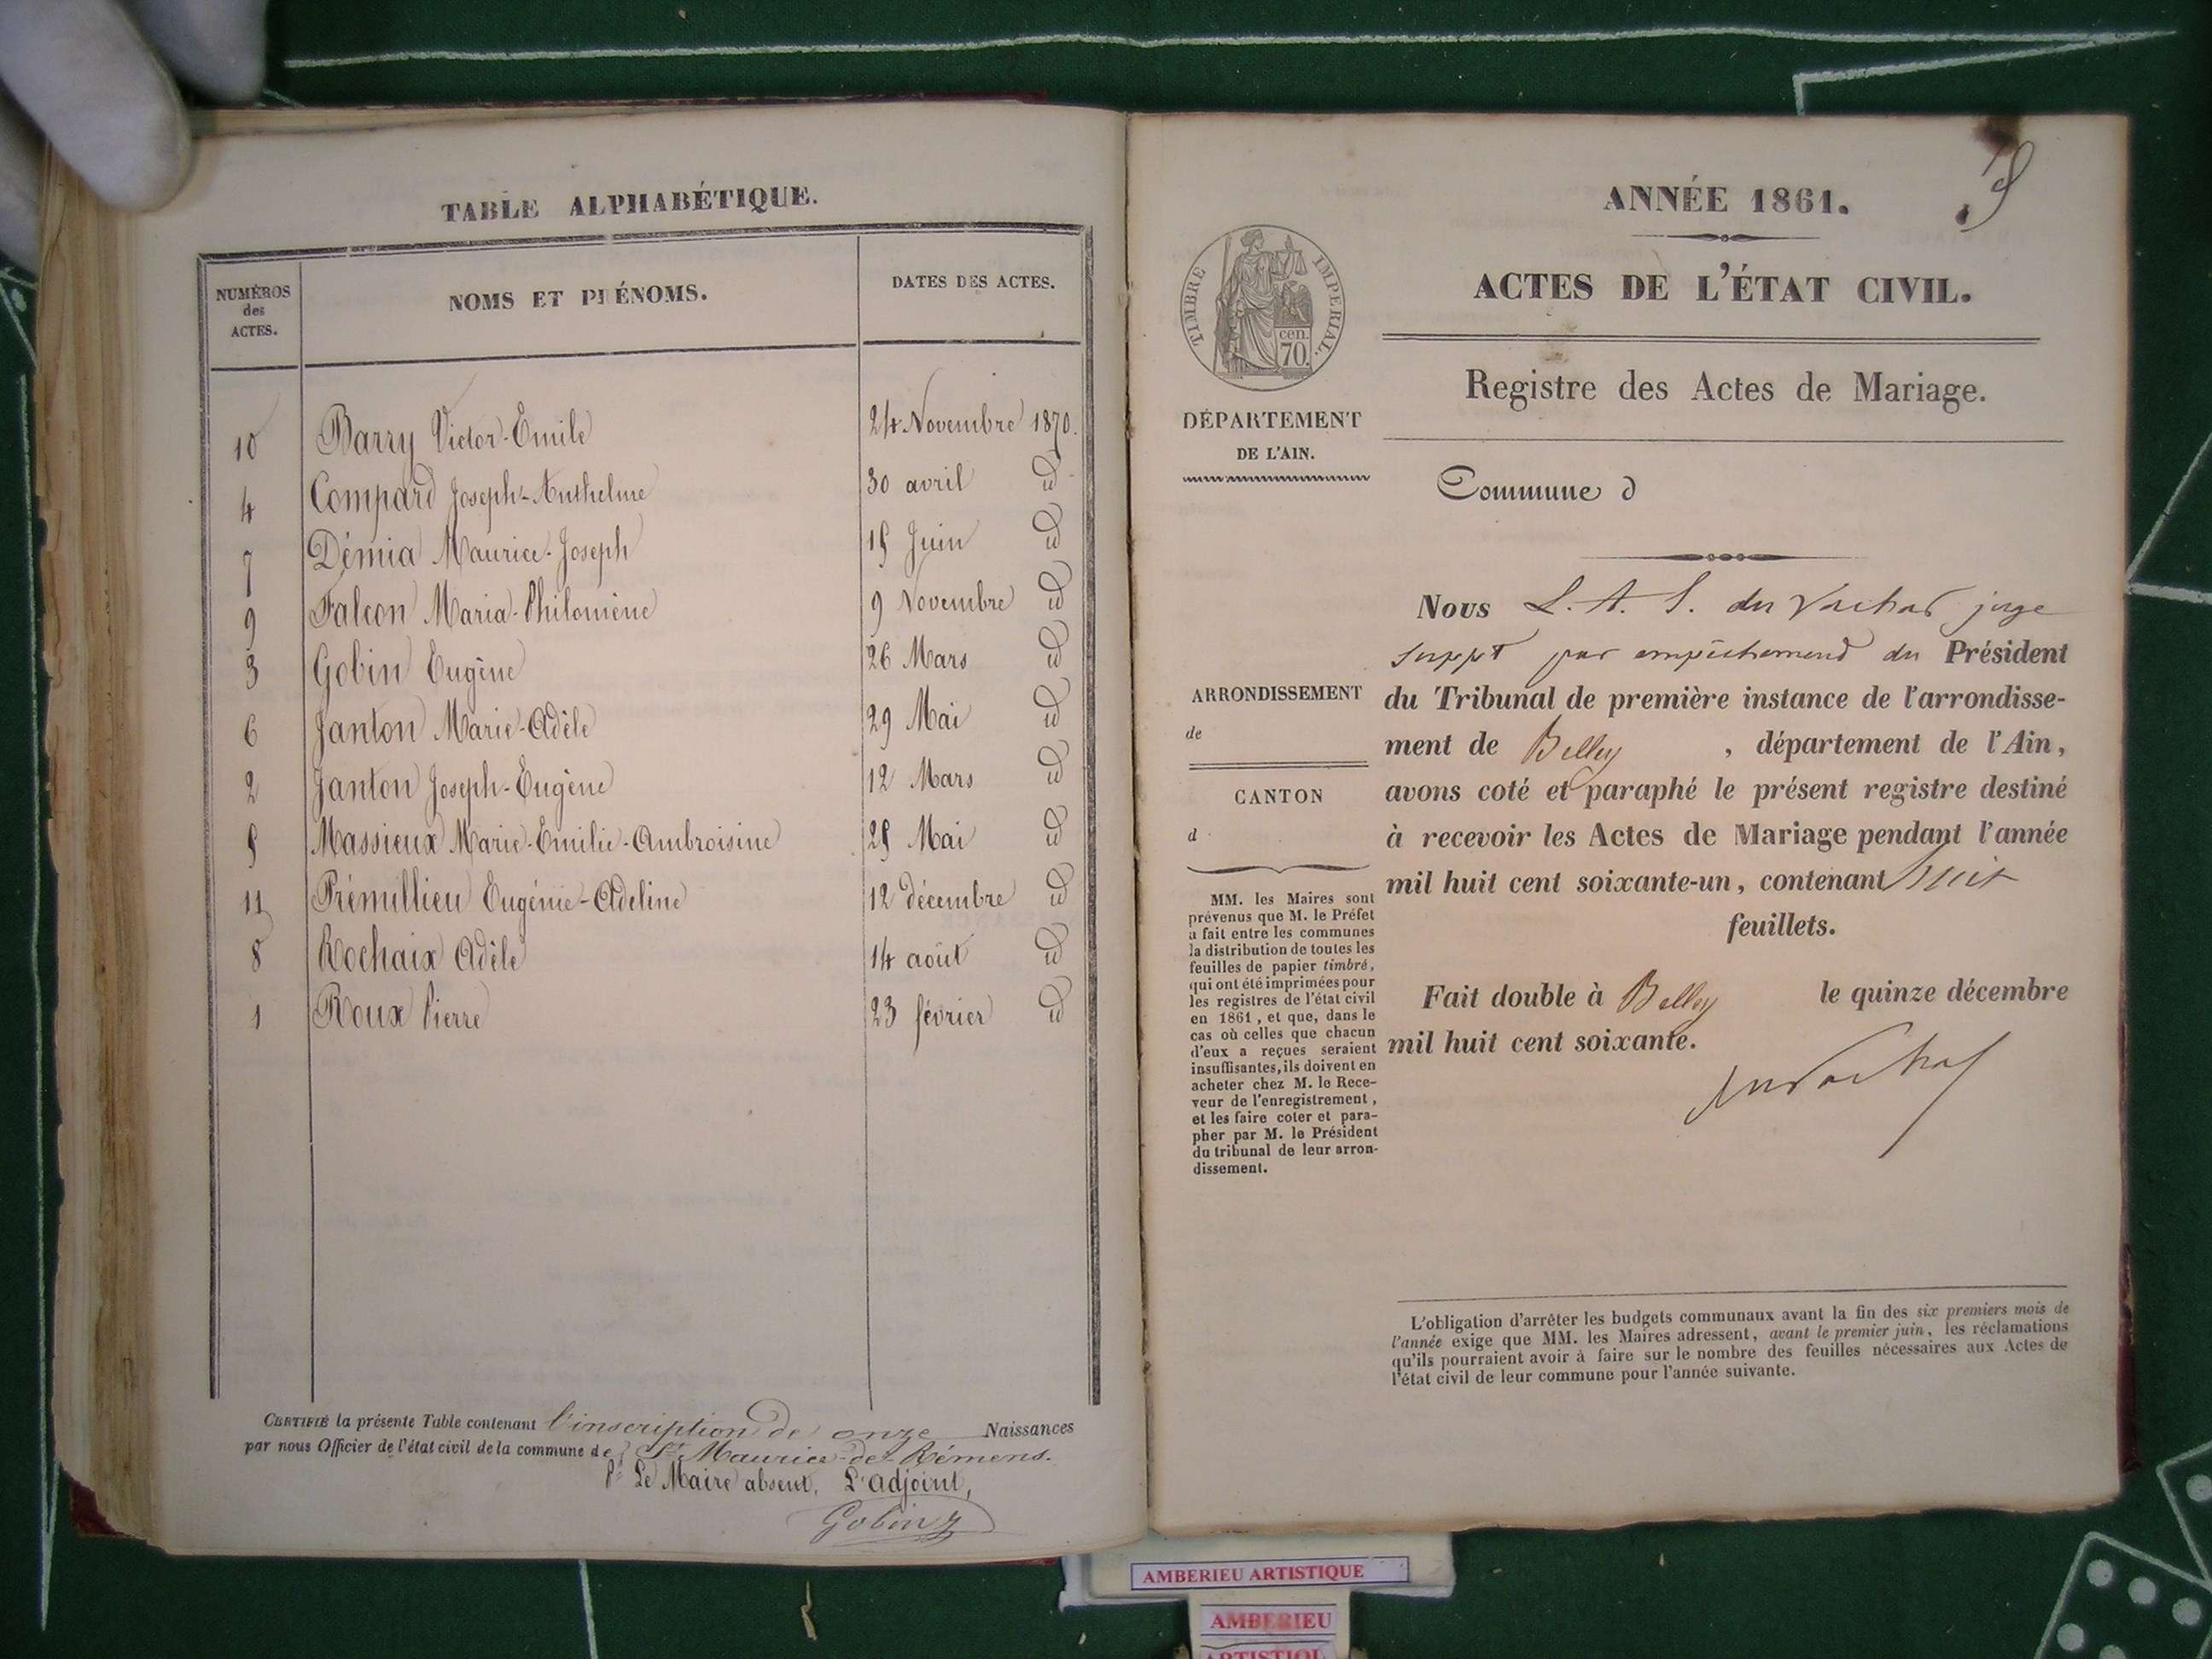 TABLE ALPHABÉTIQUE.
NUMÉROS des ACTES. NOMS ET PRÉNOMS. DATES DES ACTES.
10 Barry Victor-Emile 24 Novembre 1870.
4 Compard Joseph-Anthelme 30 avril id
7 Démia Maurice-Joseph 15 Juin id
9 Falcon Maria-Philomène 9 Novembre id
3 Gobin Eugène 26 Mars id
6 Janton Marie-Adèle 29 Mai id
2 Janton Joseph-Eugène 12 Mars id
5 Massieux Marie-Emilie-Ambroisine 25 Mai id
11 Prémillieu Eugénie-Adeline 12 décembre id
8 Rochaix Adèle 14 août id
1 Roux Pierre 23 février id
CERTIFIÉ la présente Table contenant l'inscription de onze Naissances
par nous Officier de l'état civil de la commune de St Maurice-de-Rémens.
Pr Le Maire absent, L'adjoint,
Gobin
ANNÉE 1861.
ACTES DE L'ÉTAT CIVIL.
TIMBRE IMPERIAL.
cen.
70.
Registre des Actes de Mariage.
DÉPARTEMENT
DE L'AIN.
Commune d
Nous L. A. S. du Vachat juge
suppt par empêchement du Président
du Tribunal de première instance de l'arrondisse-
ment de Belley, département de l'Ain,
avons coté et paraphé le présent registre destiné
à recevoir les Actes de Mariage pendant l'année
mil huit cent soixante-un, contenant huit
feuillets.
Fait double à Belley le quinze décembre
mil huit cent soixante.
duVachat
ARRONDISSEMENT
de
CANTON
d
MM. les Maires sont
prévenus que M. le Préfet
a fait entre les communes
la distribution de toutes les
feuilles de papier timbré,
qui ont été imprimées pour
les registres de l'état civil
en 1861, et que, dans le
cas où celles que chacun
d'eux a reçues seraient
insuffisantes, ils doivent en
acheter chez M. le Rece-
veur de l'enregistrement,
et les faire coter et para-
pher par M. le Président
du tribunal de leur arron-
dissement.
L'obligation d'arrêter les budgets communaux avant la fin des six premiers mois de
l'année exige que MM. les Maires adressent, avant le premier juin, les réclamations
qu'ils pourraient avoir à faire sur le nombre des feuilles nécessaires aux Actes de
l'état civil de leur commune pour l'année suivante.
AMBERIEU ARTISTIQUE
AMBERIEU
ARTISTIQUE